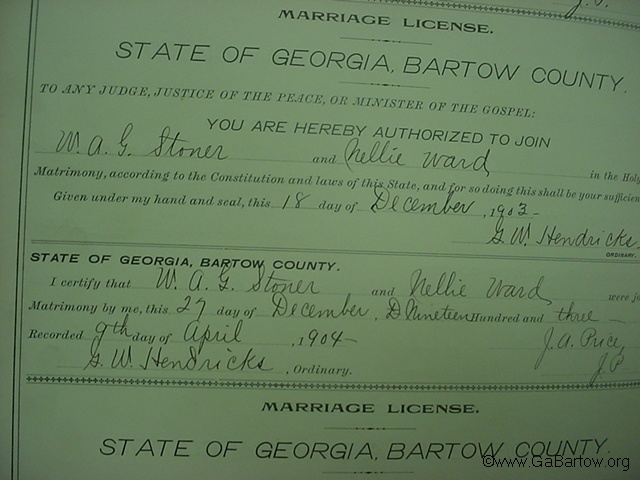 MARRIAGE LICENSE.
STATE OF GEORGIA, BARTOW COUNTY.
TO ANY JUDGE, JUSTICE OF THE PEACE, OR MINISTER OF THE GOSPEL:
YOU ARE HEREBY AUTHORIZED TO JOIN
W. A. G. Stoner and Nellie Ward in the Holy
Matrimony, according to the Constitution and laws of this State, and for so doing this shall be your sufficien
Given under my hand and seal, this 18 day of December, 1903-
G. W. Hendricks.
ORDINARY.
STATE OF GEORGIA, BARTOW COUNTY.
I certify that W. A. G. Stoner and Nellie Ward were jo
Matrimony by me, this 27 day of December, D Nineteen Hundred and three-
Recorded 9th day of April, 1904- J. A. Price,
G. W. Hendricks, Ordinary. J P
MARRIAGE LICENSE.
STATE OF GEORGIA, BARTOW COUNTY.
©www.GaBartow.org